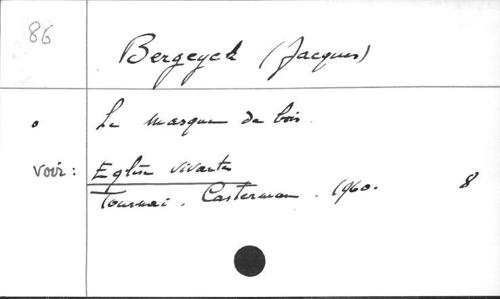 86
Bergeyck (Jacques)
Le masque de bois.
voir : Eglise vivante
Tournai. Casterman. 1960. 8